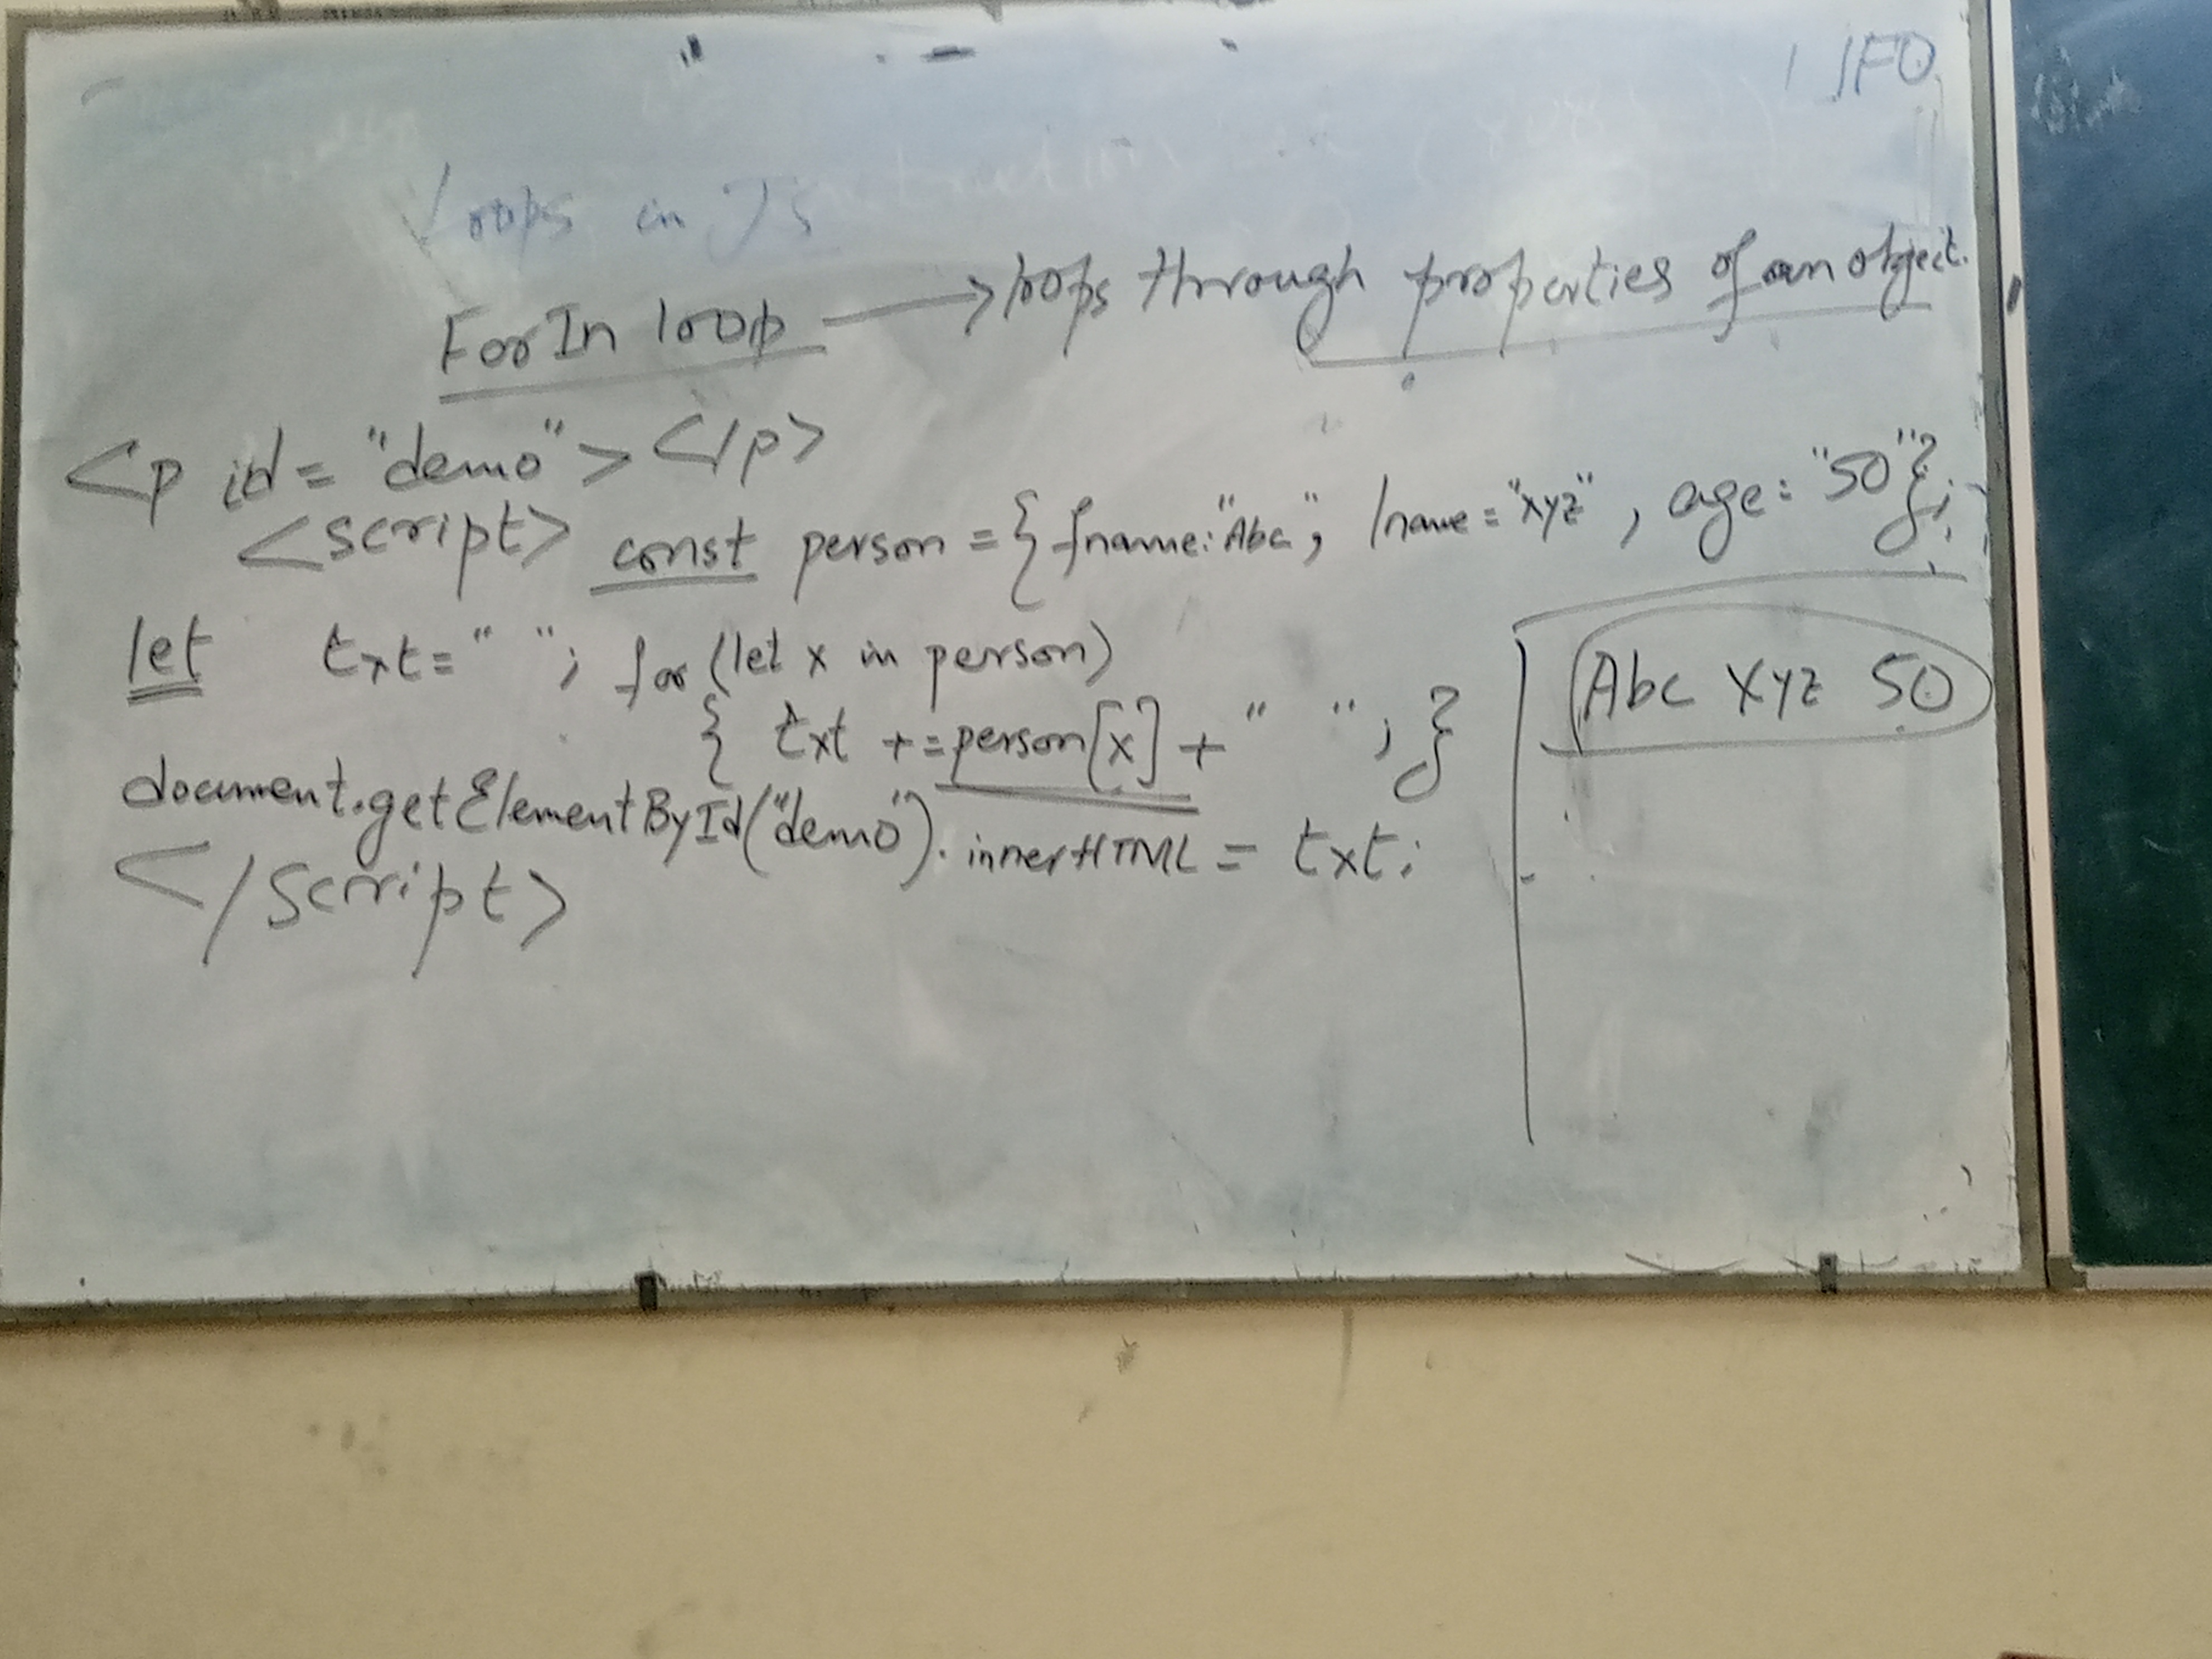 LIFO
Loops in JS
ForIn loop → loops through properties of an object.
<p id = "demo"> </p>
<script> const person = { fname: "Abc", lname = "xyz", age: "50"};
let txt = " "; for (let x in person)
{ txt += person[x] + " "; }
Abc Xyz 50
document.getElementById("demo").innerHTML = txt;
</script>